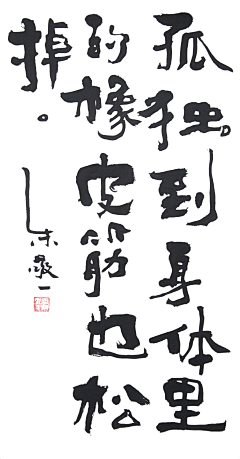 孤独到身体里
的橡皮筋也松
掉。
朱敬一